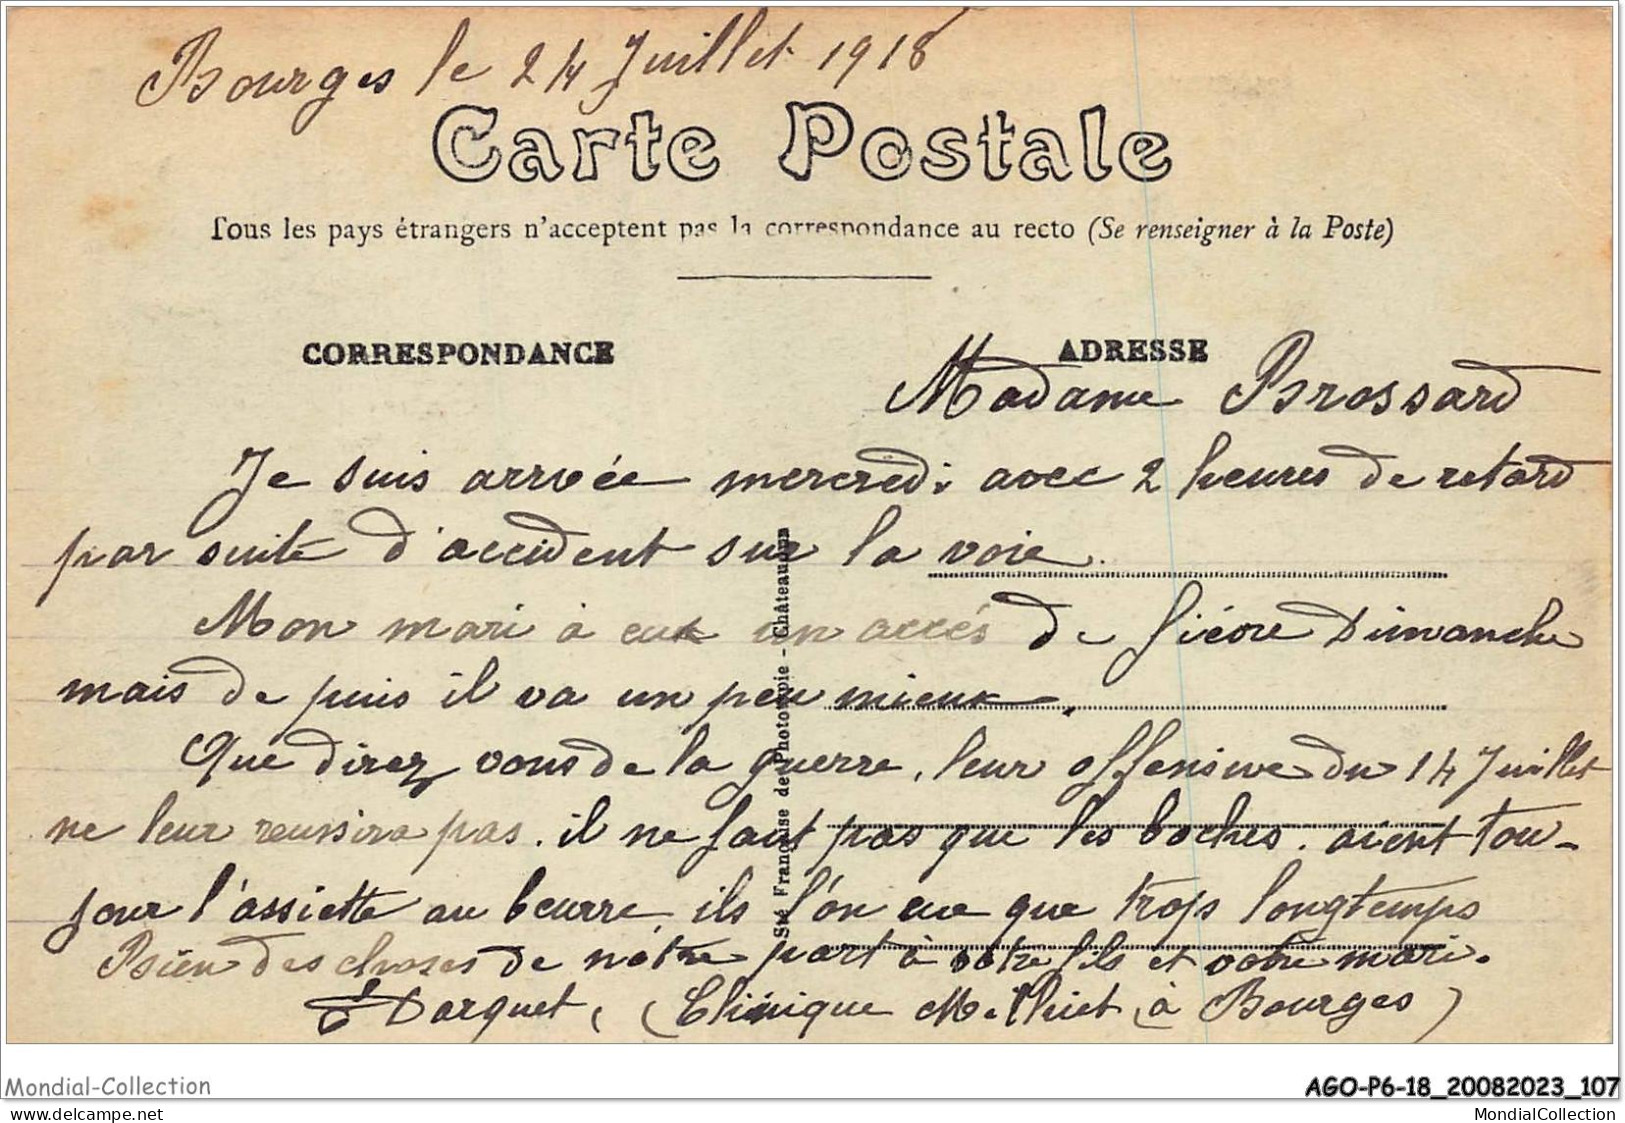 Bourges le 24 Juillet 1918
Carte Postale
Tous les pays étrangers n'acceptent pas la correspondance au recto (Se renseigner à la Poste)
CORRESPONDANCE
ADRESSE
Madame Brossard
Je suis arrivée mercredi avec 2 heures de retard
par suite d'accident sur la voie.
Mon mari à eut un accés de fièvre Dimanche
mais de puis il va un peu mieux.
Que direz vous de la guerre, leur offensive du 14 Juillet
ne leur reussira pas. il ne faut pas que les boches. aient tou-
jour l'assiette au beurre, ils l'on eue que trop longtemps
Bien des choses de nôtre part à vôtre fils et votre mari.
Darquet, (Clinique à Bourges)
Sté Française de Phototypie - Châteaudun
Mondial-Collection
delcampe.net
AGO-P6-18_20082023_107
MondialCollection